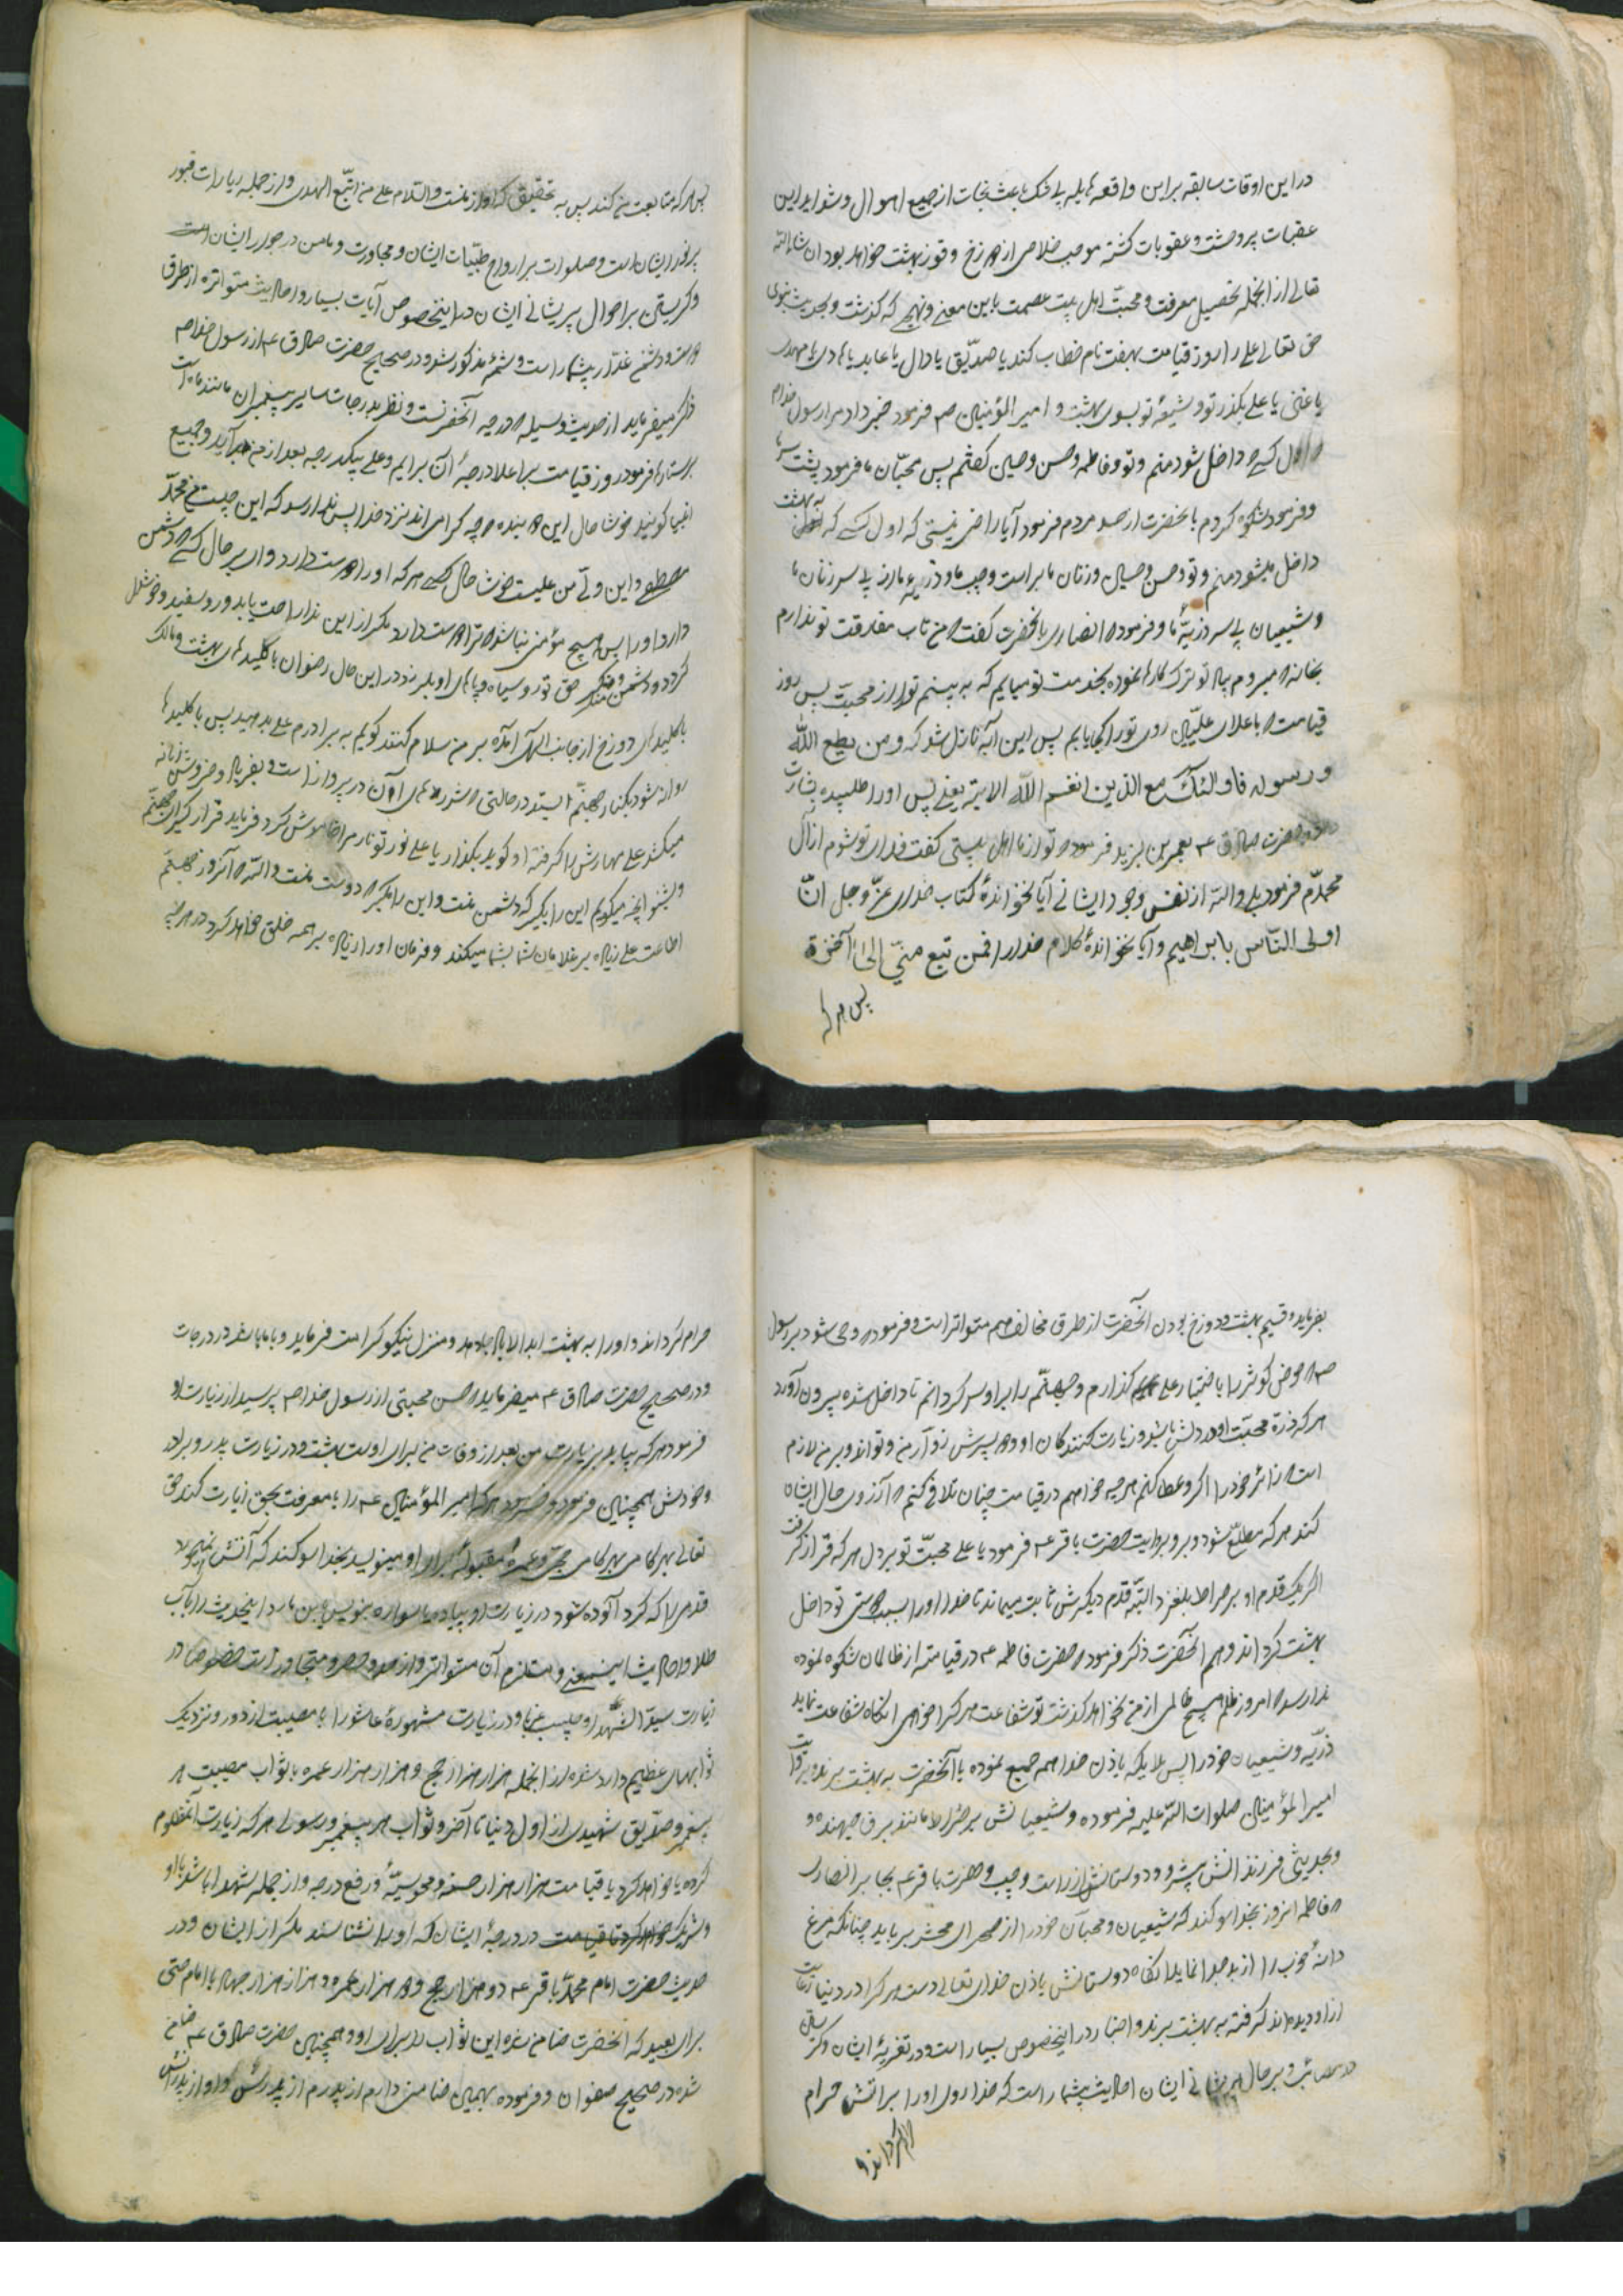 در این اوقات سابقه بر این واقعه هایله بی شک باعث نجات از جمیع اهوال و شداید این
عقبات پر وحشت و عقوبات گشته موجب خلاصی از دوزخ و فوز بهشت خواهد بود ان شاءالله
تعالی از آنجمله تحصیل معرفت و محبت اهل بیت عصمت باین معنی و نهجی که گذشت و بحدیث نبوی
حق تعالی علی را روز قیامت بهفت نام خطاب کند یا صدّیق یا دال یا عابد یا هادی یا مهدی
یا علی بگذر تو و شیعهٔ تو بسوی بهشت و امیر المؤمنین ص فرمود خبر داد مرا رسول خدا
اول کسی داخل شود منم و تو و فاطمه و حسن و حسین گفتم پس محبّان ما فرمود پشت سر ما
و فرمود شکوه کردم بآنحضرت از حسد مردم فرمود آیا راضی نیستی که اول کسی که به بهشت
داخل میشود منم و تو و حسن و حسین و زنان ما بر راست و چپ ما و ذریه ما در پی سر زنان ما
و شیعیان پی سر ذریّهٔ ما و فرمود انصاری بآنحضرت گفت من تاب مفارقت تو ندارم
بخانه میروم بیاد تو ترک کارها نموده بخدمت تو میایم که به بینم تو را از محبت پس روز
قیامت باعلای علیین روی تو را کجا یابم پس این آیه نازل شد که و من یطع الله
و رسوله فاولئک مع الذین انعم الله الایة یعنی پس او را طلبیده بشارت
حضرت صادق ع بعمر بن یزید فرمود تو از ما اهل بیتی گفت فدای تو شوم از آل
محمدّم فرمود بلی والله از نفس وجود ایشانی آیا نخواندهٔ کتاب خدای عزّ و جل انّ
اولی النّاس بابراهیم و آیا نخواندهٔ کلام خدا را فمن تبع منّی إلی آخره
پس هر که
پس هر که متابعت من کند پس به تحقیق که او از منست والسلام علی من اتّبع الهدی و از جمله زیارات قبور
ایشان است و صلوات بر ارواح طیّبات ایشان و مجاورت و مامن در جوار ایشان است
و گریستن بر احوال پریشانی ایشان در اینخصوص آیات بسیار و احادیث متواتره از طرق
دوست و دشمن غدّار بیشمار است و شمهٔ مذکور شود در صحیح حضرت صادق ع از رسول خدا ص
ذکر میفرماید از حدیث وسیله درجه آنحضرتست و نظر بدرجات سایر پیغمبران مانند ماه است
بر ستارها فرمود روز قیامت بر اعلا درجهٔ آن برایم و علی بیکدرجه بعد از من برآید و جمیع
انبیا گویند خوشا حال این دو بنده چه گرامی اند نزد خدا پس ندا رسد که این حبیب من محمّد
مصطفی و این ولیّ من علیست خوشا حال کسی هر که او را دوست دارد و وای بر حال کسی دشمن
دارد او را پس هیچ مؤمنی نباشد ترا دوست دارد مگر از این ندا راحت یابد و رو سفید و خوشحال
گردد و دشمن و منکر حق تو رو سیاه و پاهای او بلرزد در این حال رضوان با کلیدهای بهشت و مالک
با کلیدهای دوزخ از جانب الهی آمده بر من سلام کنند گویم به برادرم علی بدهید پس با کلیدها
روانه شود بکنار جهنّم ایستد در حالتی شررهای آن در پرواز است و بفریاد و خروش زبانه
میکشد علی مهارش را گرفته او گوید بگذار یا علی نور تو نار مرا خاموش کرد فرماید قرار گیر ای جهنّم
و بشنو آنچه میگویم این را بگیر که دشمن منست و این را مگیر دوست منست والله آنروز جهنّم
اطاعت علی زیاده بر غلامان شما بشما میکند و فرمان او را زیاده بر همه خلق خواهد کرد در هر چه
بفرماید و قسیم بهشت و دوزخ بودن آنحضرت از طرق مخالف هم متواتر است و فرمود وحی شود بر رسول
ص حوض کوثر را باختیار علی گذارم و جهنّم را بر او سرد گردانم تا داخل شده بیرون آورد
هر که ذرهٔ محبت او در دلش باشد و زیارت کنندگان او
است زائر خود را اگر و عطا کنم هر چه خواهم در قیامت چنان تلافی کنم آرزوی حال ایشان
کند هر که مطلع شود و بروایت حضرت باقر ع فرمود یا علی محبّت تو بر دل هر که قرار گرفت
اگر یک قدم او بر صراط بلغزد البتّه قدم دیگرش ثابت میماند تا خدا او را بسبب دوستی تو داخل
بهشت گرداند و هم آنحضرت ذکر فرمود حضرت فاطمه ع در قیامت از ظالمان شکوه نموده
ندا رسد امروز ظلم هیچ ظالمی از من نخواهد گذشت تو شفاعت هر کرا خواهی آنگاه شفاعت نماید
ذرّیه و شیعیان خود را پس ملایکه باذن خدا همه جمع نموده با آنحضرت به بهشت برند و بروایت
امیر المؤمنین صلوات الله علیه فرموده و شیعیانش بر صراط مانند برق جهنده و
و بحدیثی فرزندانش پیشرو و دوستانش از راست و چپ و حضرت باقر ع بجابر انصاری
فاطمه امروز بخدا سوگند که شیعیان و محبان خود را از صحرای محشر برباید چنانکه مرغ
دانهٔ خوب را از بد جدا نماید آنگاه دوستانش باذن خدای تعالی دست هر کرا در دنیا رعایت
از او دیده اند گرفته به بهشت برند و اخبار در اینخصوص بسیار است و در تعزیهٔ ایشان و گریستن
مصائب و بر حال پریشانی ایشان احادیث بیشمار است که خدا روی او را بر آتش حرام
گرداند و
حرام گرداند و او را به بهشت ابد الاباد جا دهد و منزل نیکو کرامت فرماید و با ما باشد در درجات
و در صحیح حضرت صادق ع میفرماید حسن مجتبی از رسول خدا ص پرسید از زیارت او
فرمود هر که بیاید بزیارت من بعد از وفات من برای اوست بهشت و در زیارت پدر و برادر
و خودش همچنین فرمود و فرمود هر که امیر المؤمنین ع را با معرفت بحق زیارت کند حق
تعالی بهر گامی حجّ و عمرهٔ مقبولهٔ برای او مینویسد بخدا سوگند که آتش نمیخورد
قدمی را که گرد آلوده شود در زیارت او پیاده یا سواره بنویس یابن مارد اینحدیث را بآب
طلا و احادیث اینمعنی و مستلزم آن متواتر و از حد و حصر متجاوز است خصوصا در
زیارت سیّد الشهدا و در زیارت مشهورهٔ عاشورا با مصیبت از دور و نزدیک
ثوابهای عظیم وارد شده از آنجمله هزار هزار حج و هزار هزار عمره با ثواب مصیبت هر
پیغمبر و صدّیق شهیدی از اول دنیا تا آخر و ثواب هر پیغمبر و رسولی هر که زیارت آنمظلوم
کرده یا خواهد کرد تا قیامت هزار هزار حسنه و محو سیّئهٔ و رفع درجه و از جمله شهدا باشد با او
و شریک در درجهٔ ایشان که او را نشناسند مگر از ایشان و در
حدیث حضرت امام محمّد باقر ع دو هزار حج و دو هزار عمره و دو هزار هزار جهاد با امام حتی
برای بعید که آنحضرت ضامن شده این ثواب را برای او و همچنین حضرت صادق ع ضامن
شده در صحیح صفوان و فرموده بهمین ضامنی دارم از پدرم از پدرش و او از پدرانش